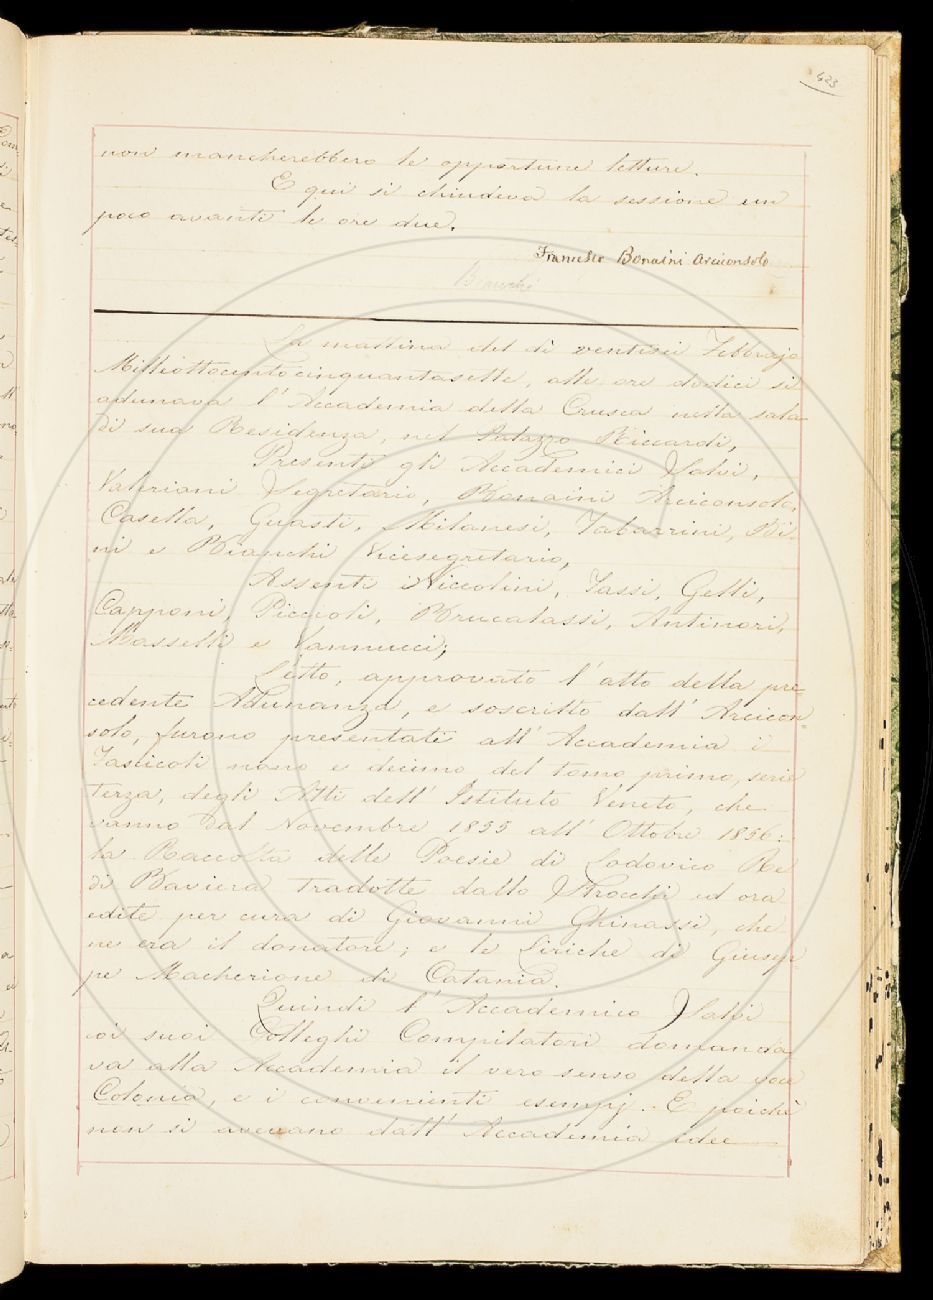 423
non mancherebbero le opportune letture.
E qui si chiudeva la sessione un
poco avanti le ore due.
Francesco Bonaini Arciconsolo
Bianchi
La mattina del dì ventisei Febbrajo
Milliottocentocinquantasette, alle ore dodici si
adunava l' Accademia della Crusca nella sala
di sua Residenza, nel Palazzo Riccardi,
Presenti gli Accademici Salvi,
Valeriani Segretario, Bonaini Arciconsolo,
Casella, Guasti, Milanesi, Tabarrini, Bi-
ni e Bianchi Vicesegretario,
Assenti Niccolini, Tassi, Gelli,
Capponi, Piccioli, Brucalassi, Antinori,
Masselli e Vannucci;
Letto, approvato l' atto della pre-
cedente Adunanza, e soscritto dall' Arcicon-
solo, furono presentati all' Accademia i
Fascicoli nono e decimo del tomo primo, serie
terza, degli Atti dell' Istituto Veneto, che
vanno dal Novembre 1855 all' Ottobre 1856:
la Raccolta delle Poesie di Lodovico Re
di Baviera tradotte dallo Strocchi ed ora
edite per cura di Giovanni Ghinassi, che
ne era il donatore; e le Liriche di Giusep
pe Macherione di Catania.
Quindi l' Accademico Salvi
coi suoi Colleghi Compilatori domanda
va alla Accademia il vero senso della voce
Colonia, e i convenienti esempj. E poichè
non si avevano dall' Accademia idee